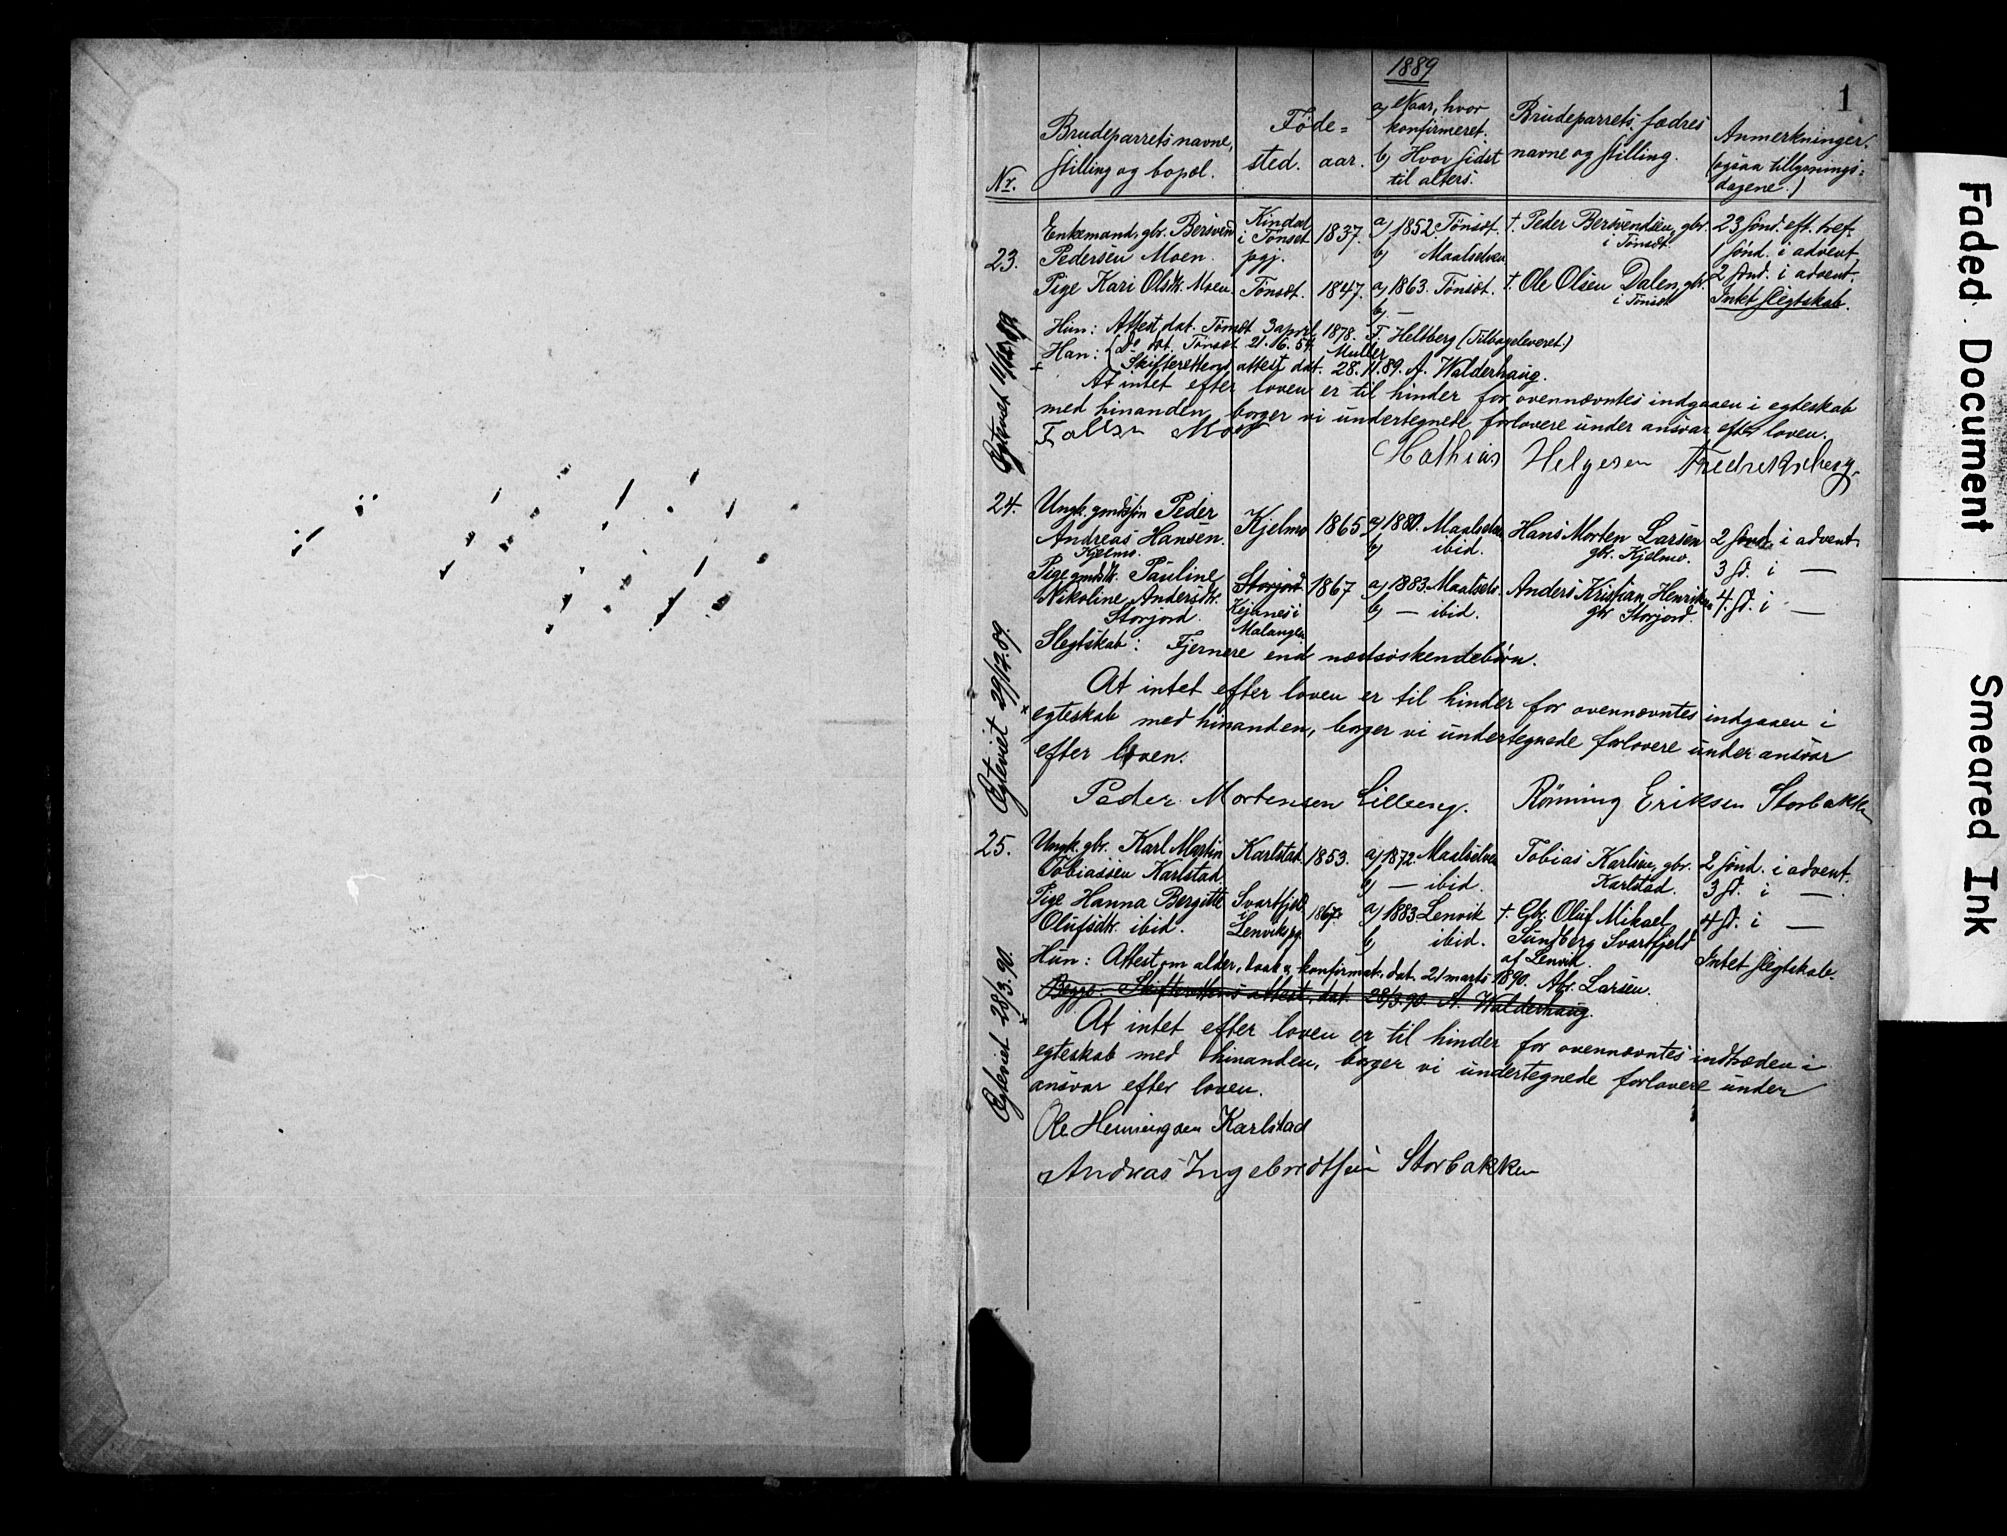 1889
1
Nr.
Brudeparrets navne,
stilling og bopæl.
Føde=
sted.
aar.
a) Naar, hvor
konfirmeret.
b) Hvor sidst
til alters.
Brudeparrets fædres
navne og stilling.
Anmerkninger.
(ogsaa tillysnings=
dagene.)
23.
Enkemand, gbr. Bersvend
Pedersen Moen.
Kindal
i Tønset
pgj.
1837.
a) 1852. Tønset.
b) Maalselven
† Peder Bersvendsen, gbr.
i Tønset.
23 sønd. eft. tref.
1 sønd. i advent
2 sønd. i advent.
Pige Kari Olsdtr. Moen
Tønset.
1847.
a) 1863. Tønset.
b) —
† Ole Olsen Dalen, gbr.
i Tønset
Intet slegtskab.
Hun: Attest, dat. Tønset 3 april 1878. F. Heltberg (Tilbageleveret.)
Han: Do dat. Tønset 21.16.54. Muller
Skifterettens attest dat. 28.11.89. A. Walderhaug.
At intet efter loven er til hinder for ovennævntes indgaaen i egteskab
med hinanden, borger vi undertegnede forlovere under ansvar efter loven.
Mathias Helgesen Fredriksberg
Egteviet 11/12.89.
24.
Ungk. gmdsøn Peder
Andreas Hansen.
Kjelmo.
Kjelmo
1865
a) 1880. Maalselven
b) ibid.
Hans Morten Larsen
gbr. Kjelmo.
2 sønd. i advent.
3 sd. i —
Pige gmdsdtr. Pauline
Nikoline Andersdtr.
Storjord.
Storjord
Kejsnes i
Malangen
1867
a) 1883. Maalselv.
b) — ibid.
Anders Kristian Henriksen
gbr. Storjord.
4. sd. i —
Slegtskab: Fjernere end nædsøskendebørn.
At intet efter loven er til hinder for ovennævntes indgaaen i
egteskab med hinanden, borger vi undertegnede forlovere under ansvar
efter loven.
Peder Mortensen Lilleeng. Rønning Eriksen Storbakken
Egteviet 29/12.89.
25.
Ungk. gbr. Karl Martin
Tobiassen Karlstad
Karlstad
1853.
a) 1872 Maalselven
b) — ibid.
Tobias Karlsen, gbr.
Karlstad.
2 sønd. i advent.
3 sd. i —
Pige Hanna Bergitte
Olufsdtr. ibid.
Svartfjeld
i
Lenvik pgj.
1867
a) 1883 Lenvik
b) ibid.
†. Gbr. Oluf Mikael
Sundberg Svartfjeld
af Lenvik.
4 sd. i —
Intet slegtskab.
Hun: Attest om alder, daab & konfirmat. dat. 21 marts 1890. Abr. Larsen.
Begge: Skifterettens attest, dat. 28/3.90. A. Walderhaug.
At intet efter loven er til hinder for ovennævntes indtræden i
egteskab med hinanden, borger vi undertegnede forlovere under
ansvar efter loven.
Ole Henningsen Karlstad
Andreas Ingebredtsen Storbakken
Egteviet 28/3.90.
Faded Document
Smeared Ink